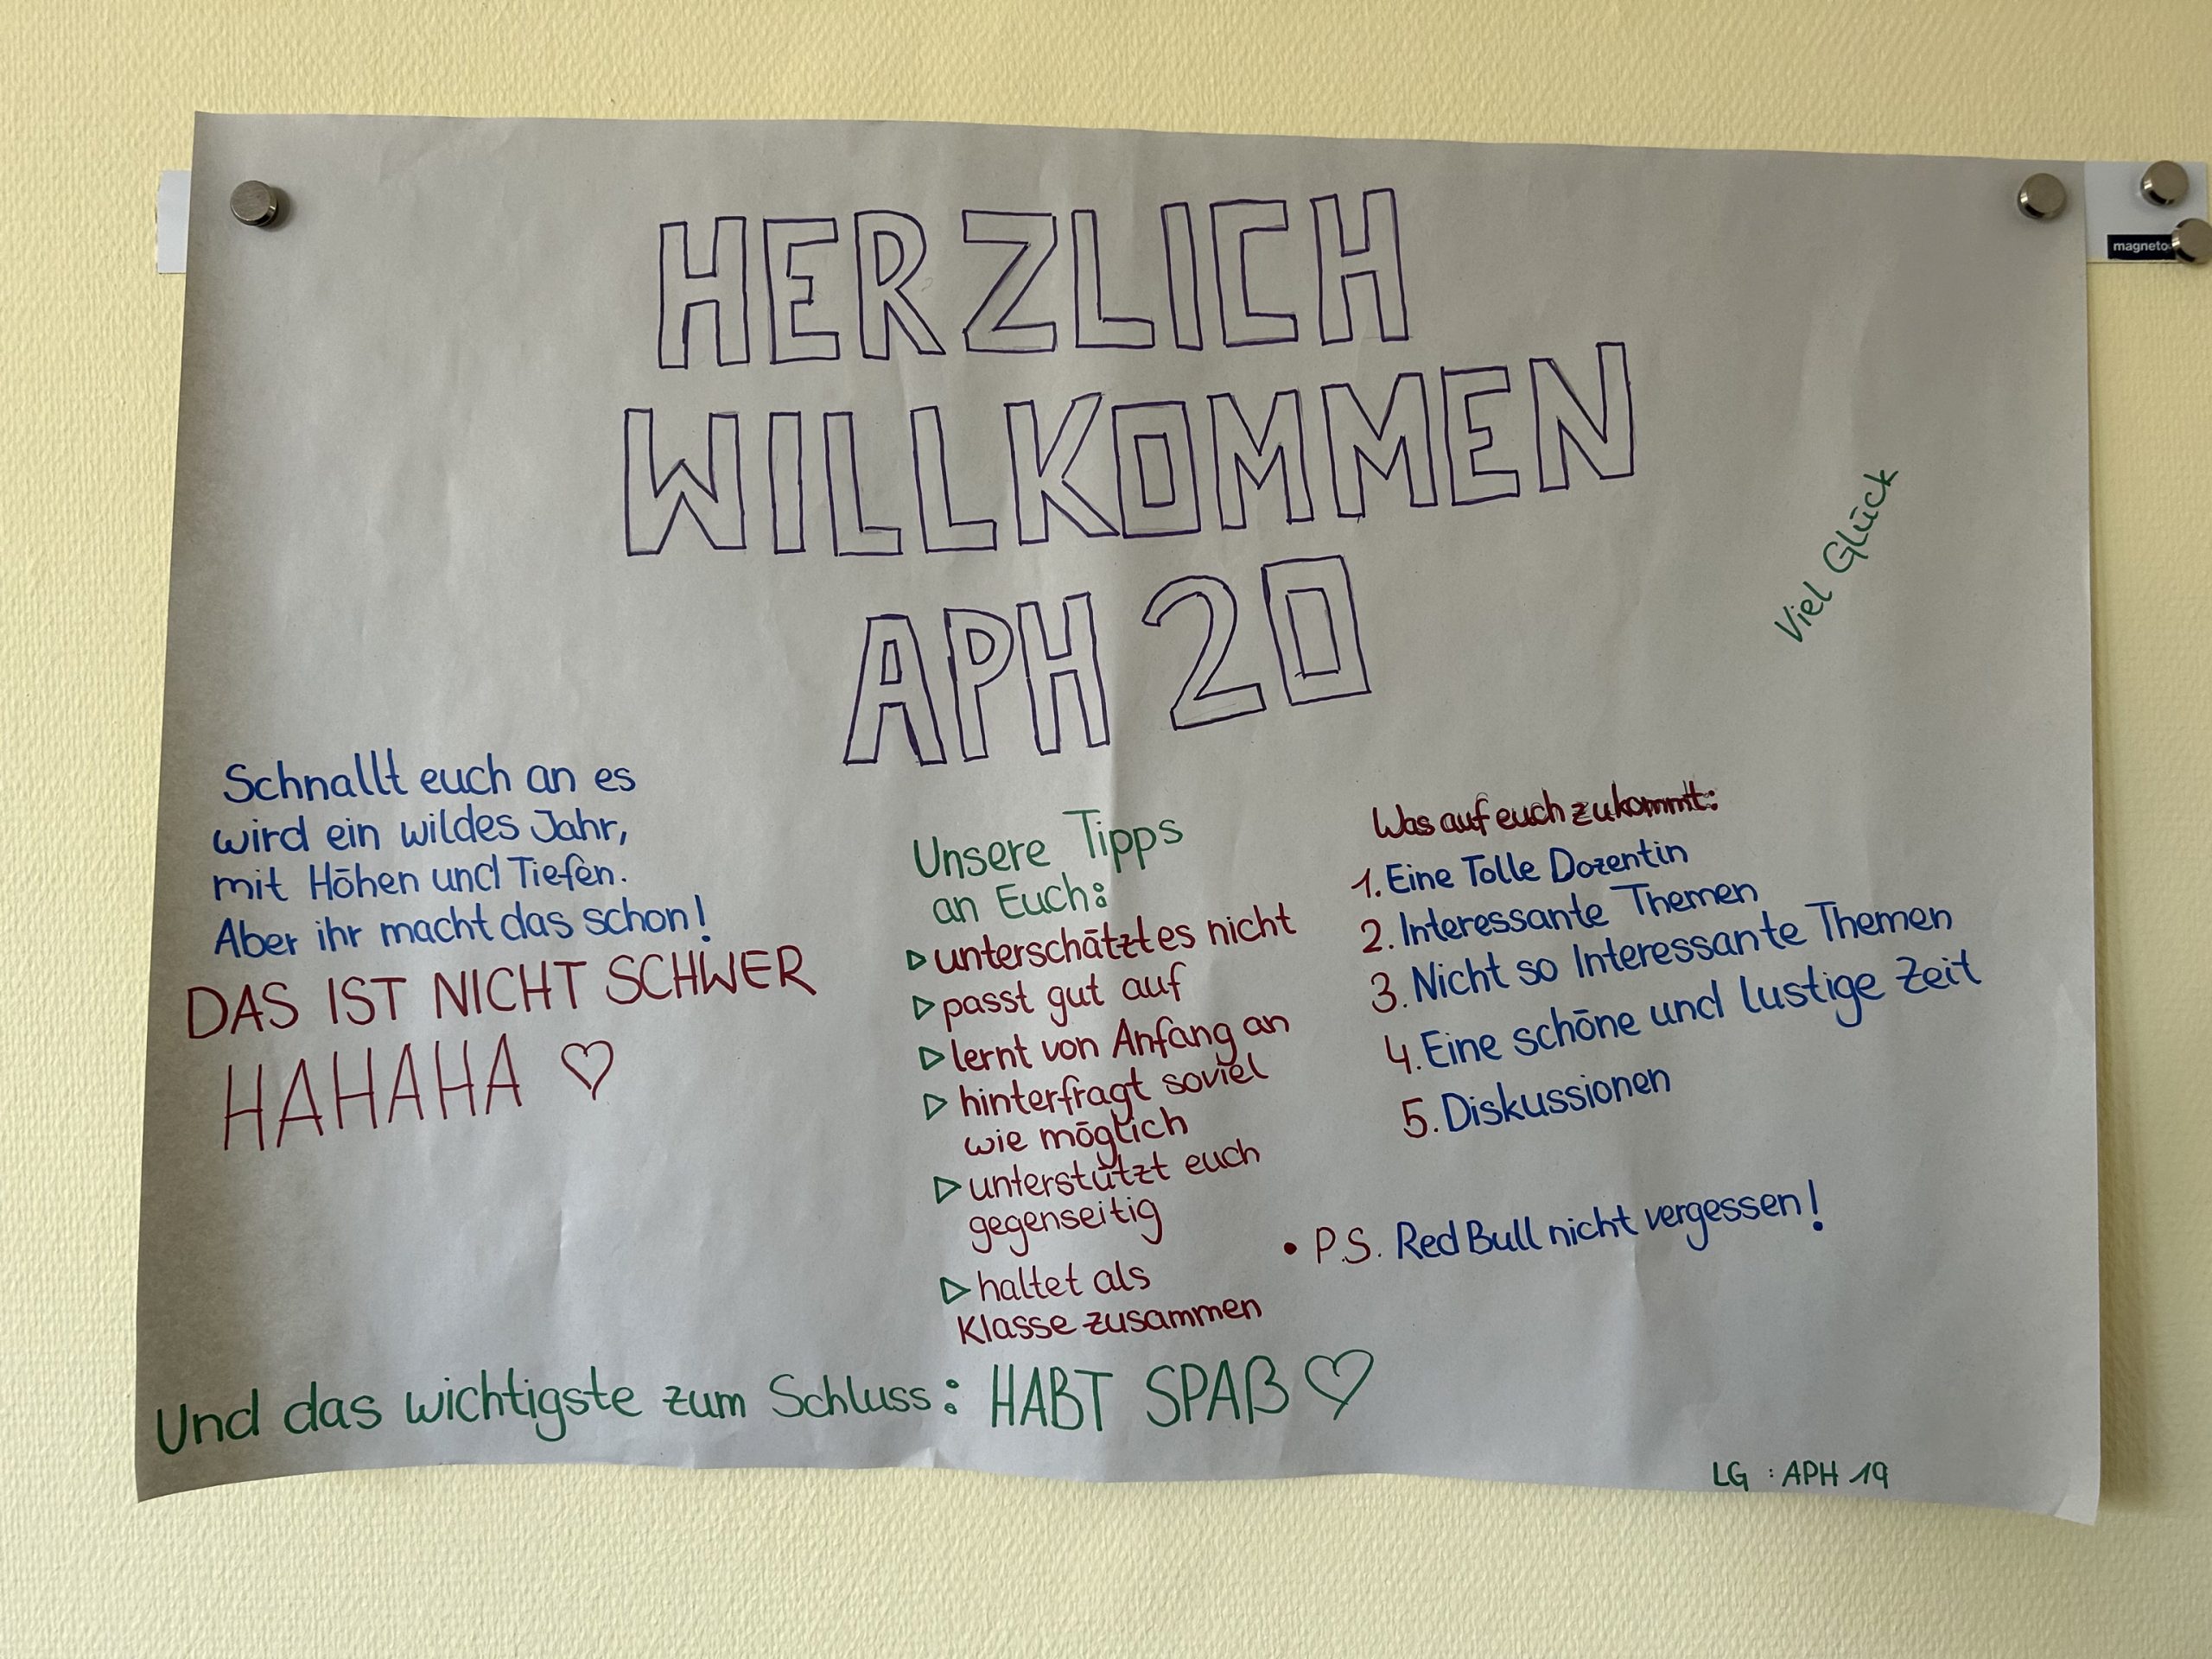 HERZLICH
WILLKOMMEN
APH 20
Viel Glück
Schnallt euch an es
wird ein wildes Jahr,
mit Höhen und Tiefen.
Aber ihr macht das schon!
DAS IST NICHT SCHWER
HAHAHA ♡
Unsere Tipps
an Euch:
▷ unterschätzt es nicht
▷ passt gut auf
▷ lernt von Anfang an
▷ hinterfragt soviel
wie möglich
▷ unterstützt euch
gegenseitig
▷ haltet als
Klasse zusammen
Was auf euch zukommt:
1. Eine Tolle Dozentin
2. Interessante Themen
3. Nicht so Interessante Themen
4. Eine schöne und lustige Zeit
5. Diskussionen
• P.S. Red Bull nicht vergessen!
Und das wichtigste zum Schluss: HABT SPAß ♡
LG : APH 19